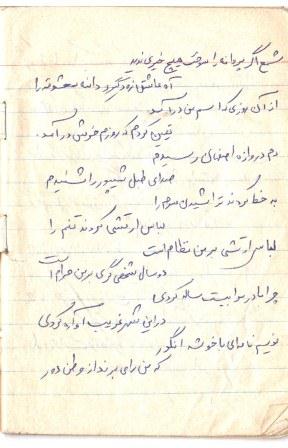 شمع اگر پروانه را سوخت هیچ خیری ندید
آه عاشق زود گیرد دامن معشوقه را
از آن روزی که اسم من درآمد
یقین بودم که روزم خوش درآمد
دم دروازه اصفهان رسیدم
صدای طبل شیپور را شنیدم
به خط کردند تراشیدن سرم را
لباس ارتشی کردند تنم را
لباس ارتشی بر من نظام است
دو سال شخصی گری بر من حرام است
چرا مادر مرا بیست ساله کردی
در این شهر غریب آواره کردی
نویسم نامه‌ای با خوشه انگور
که من رای برند از وطن دور